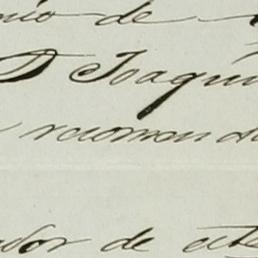 nio de
D Joaquin
recomend
ador de este